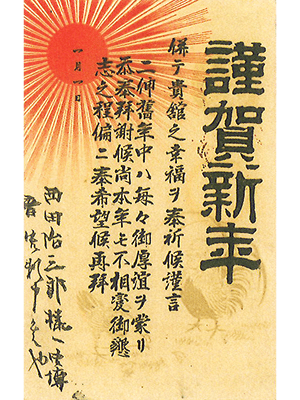 謹賀新年
併テ貴館之幸福ヲ奉祈候謹言
二伸舊年中ハ毎々御厚誼ヲ蒙リ
忝奉拜謝候尚本年モ不相變御懇
志之程偏ニ奉希望候再拜
一月一日
西田治三郎様